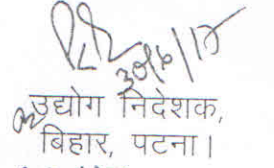 30/6/17
उद्योग निदेशक,
बिहार, पटना।